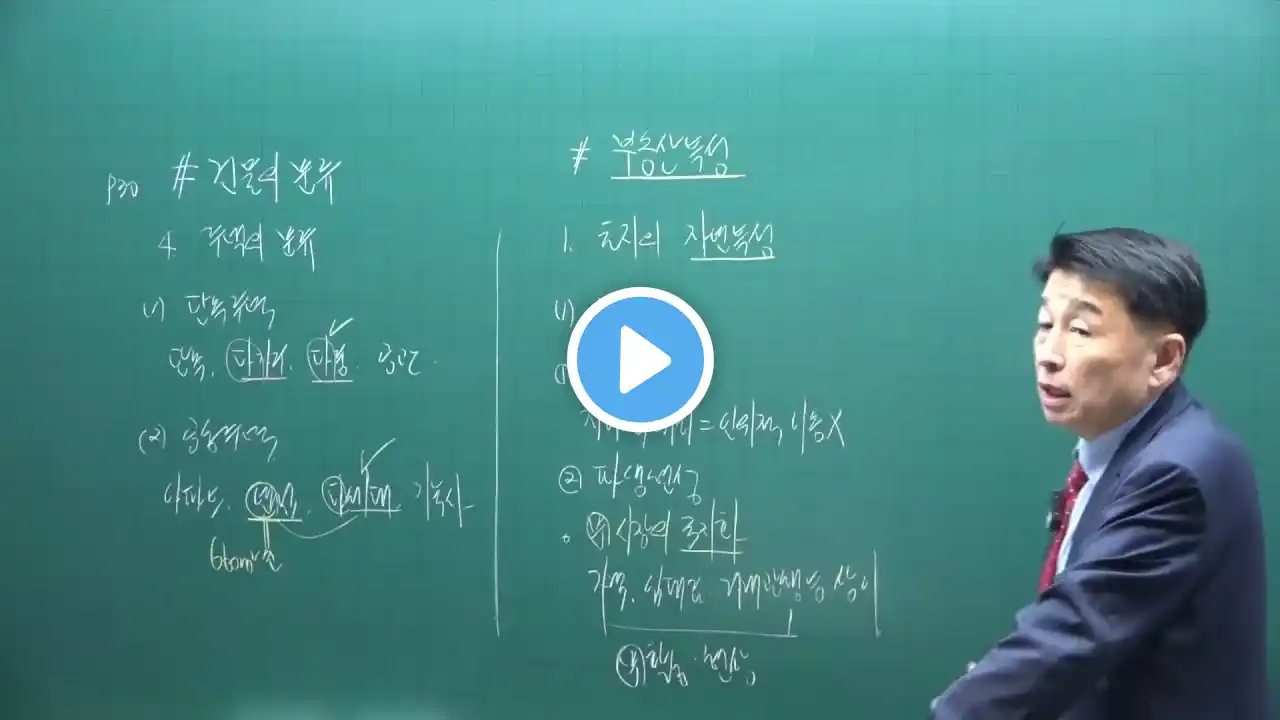 P30 # 건물의 분류
4. 주택의 분류
(1) 단독주택
단독, 다가구, 다중, 공관.
(2) 공동주택
아파트, 연립, 다세대, 기숙사
660㎡초
# 부동산특성
1. 토지의 자연특성
(1)
= 인위적, 이동X
② 파생현상
부 시장의 국지화
가격, 임대료, 거래관행 등 상이
부 활동·현상